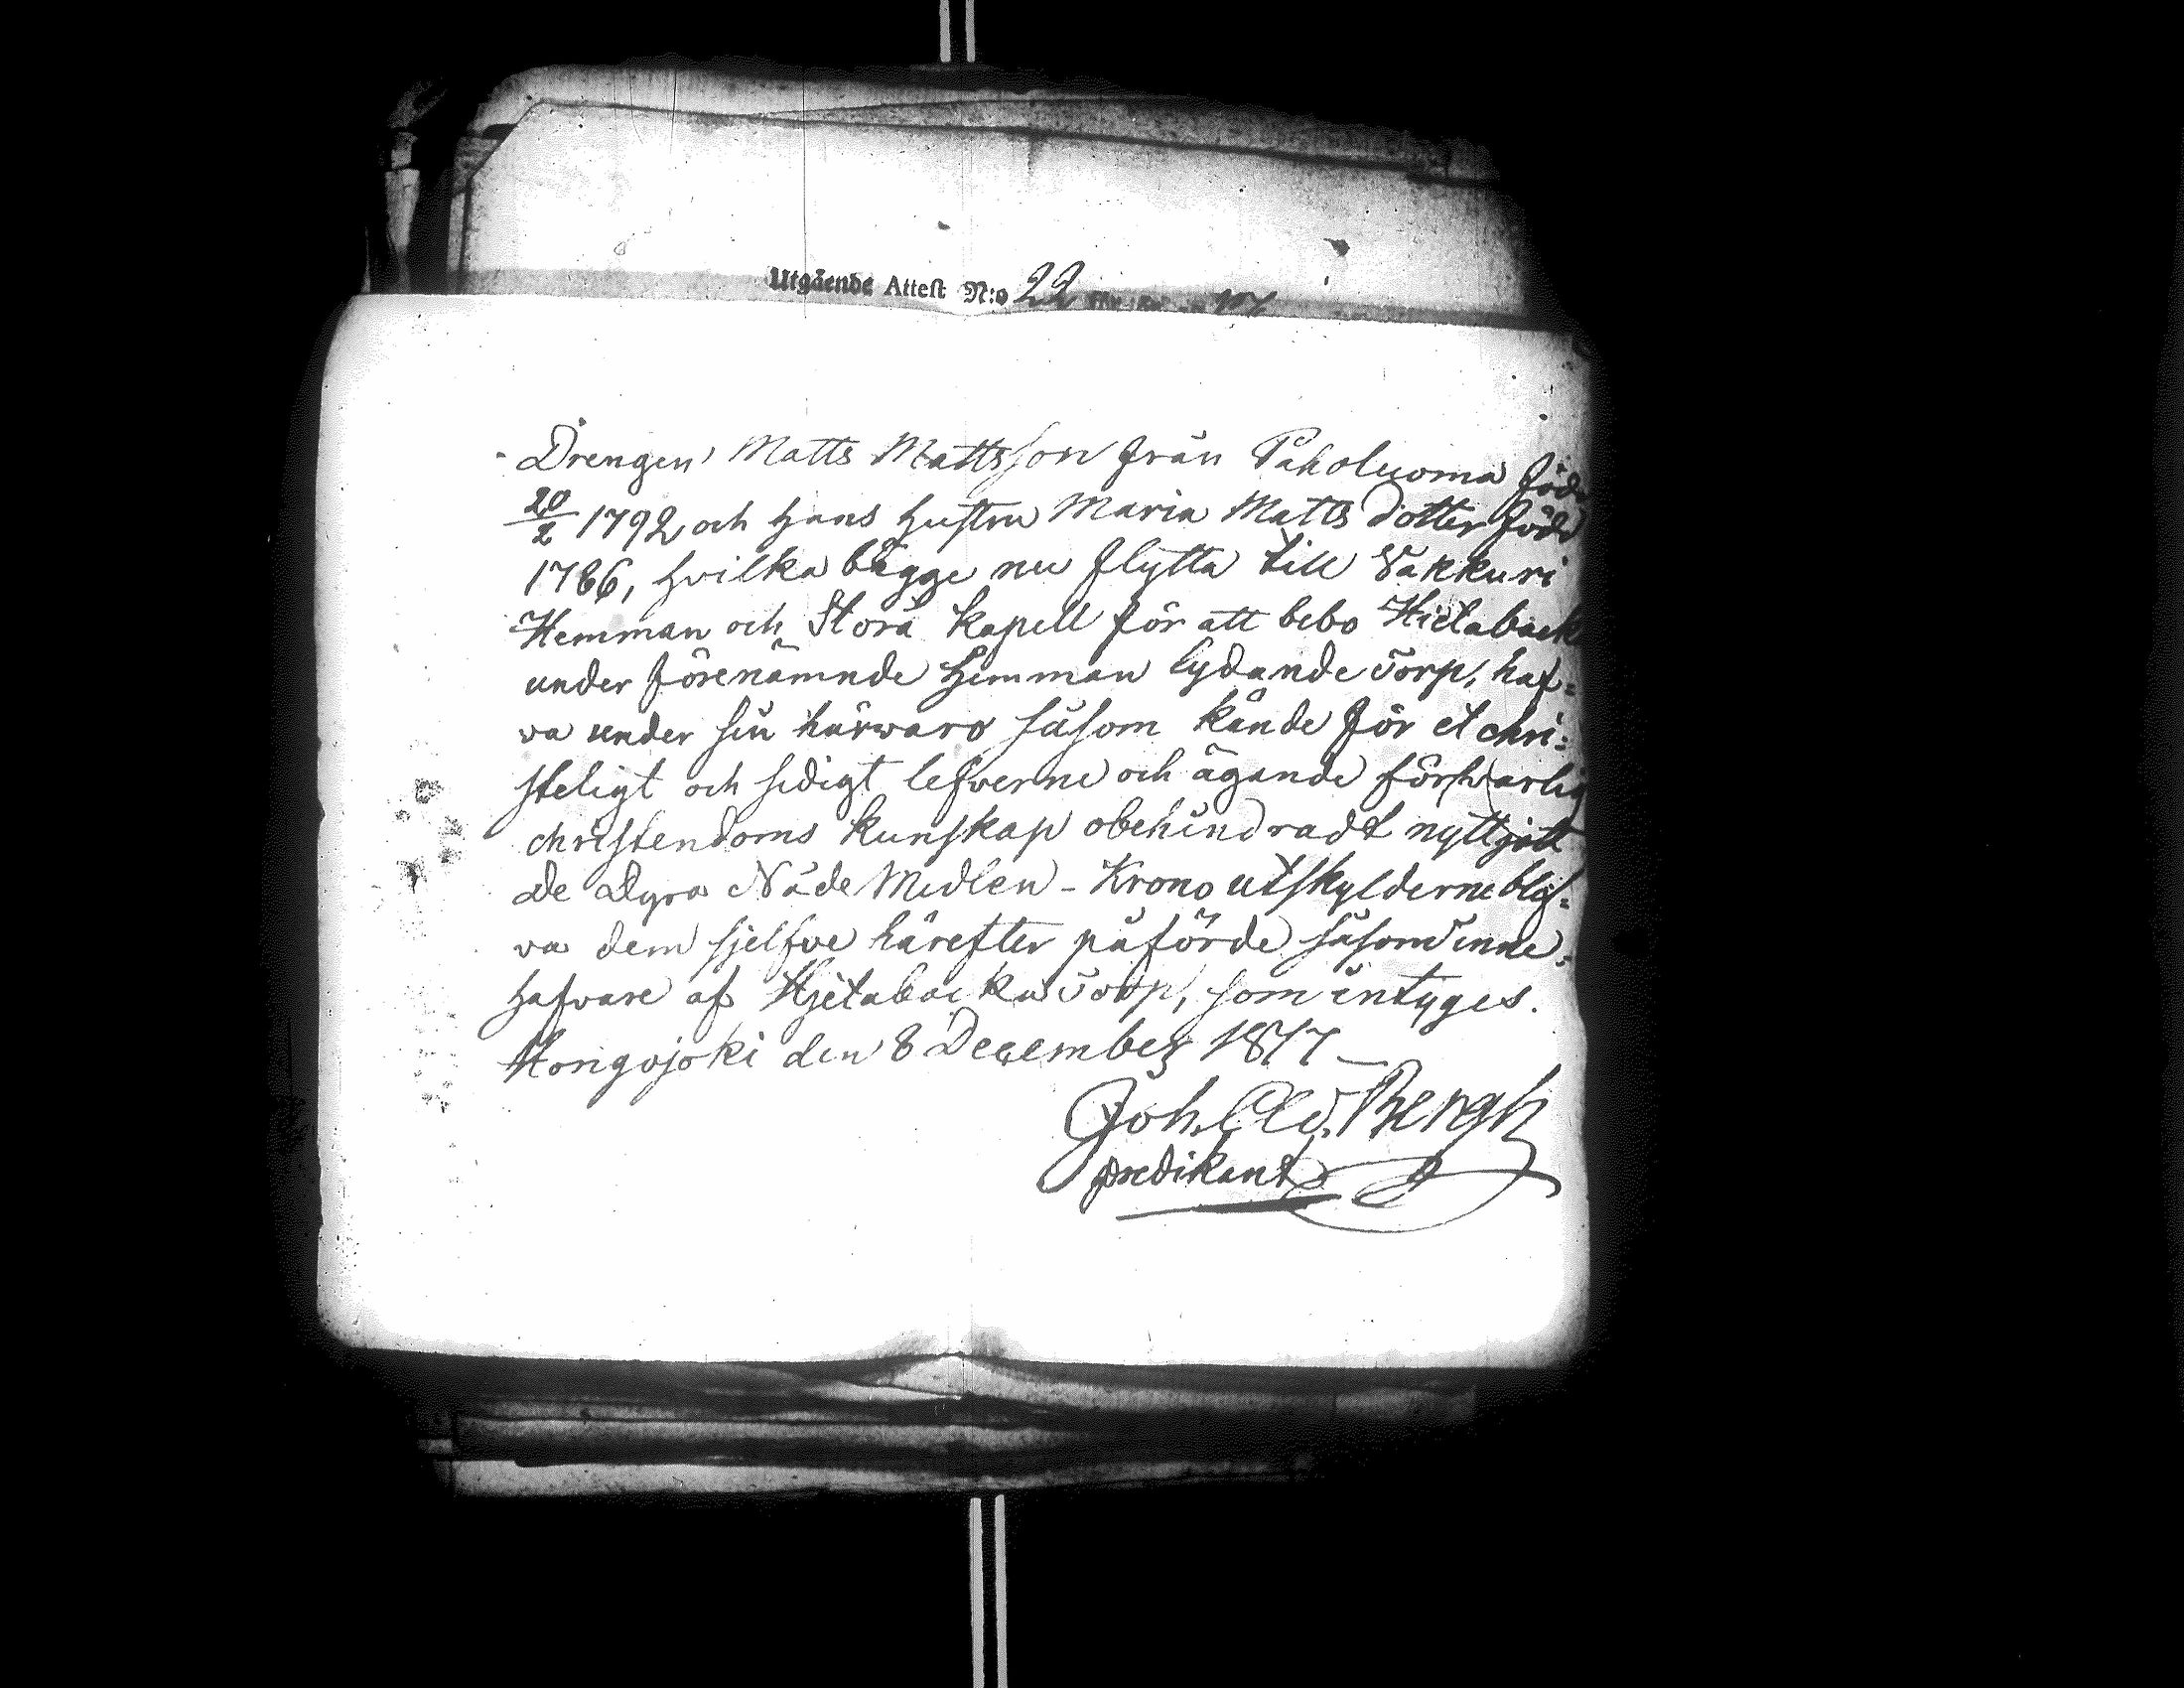 Utgående Attest N:o 22
Drengen Matts Mattsson från Påholuoma född
20/2 1792, och hans hustru Maria Matts dotter född
1786, hvilka bägge nu flytta till Vakkuri
Hemman och Storå kapell för att bebo Hietaback
under förenämnde Hemman lydande Torp, haf=
va under sin härwaro såsom kände för et chri=
steligt och sedigt lefverne och ägande försvarlig
christendoms kunskap obehindradt nyttjatt
de dyra Nåde Medlen - Krono utskylderne blif=
va dem sjelfve härefter påförde såsom inne=
hafvare af Hietabacka Torp, som intyges.
Hongojoki den 8 December 1817
Joh. Bergh
predikant